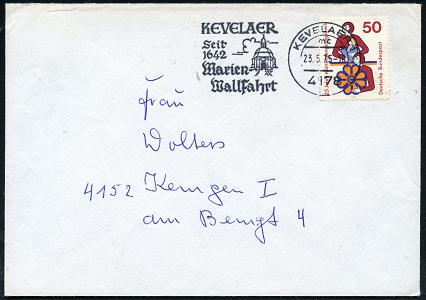 KEVELAER
Seit
1642
Marien-
Wallfahrt
KEVELAER
mc
23.5.75
4178
50
Deutsche Bundespost
Frau
Wolters
4152 Kempen I
am Bengt 4